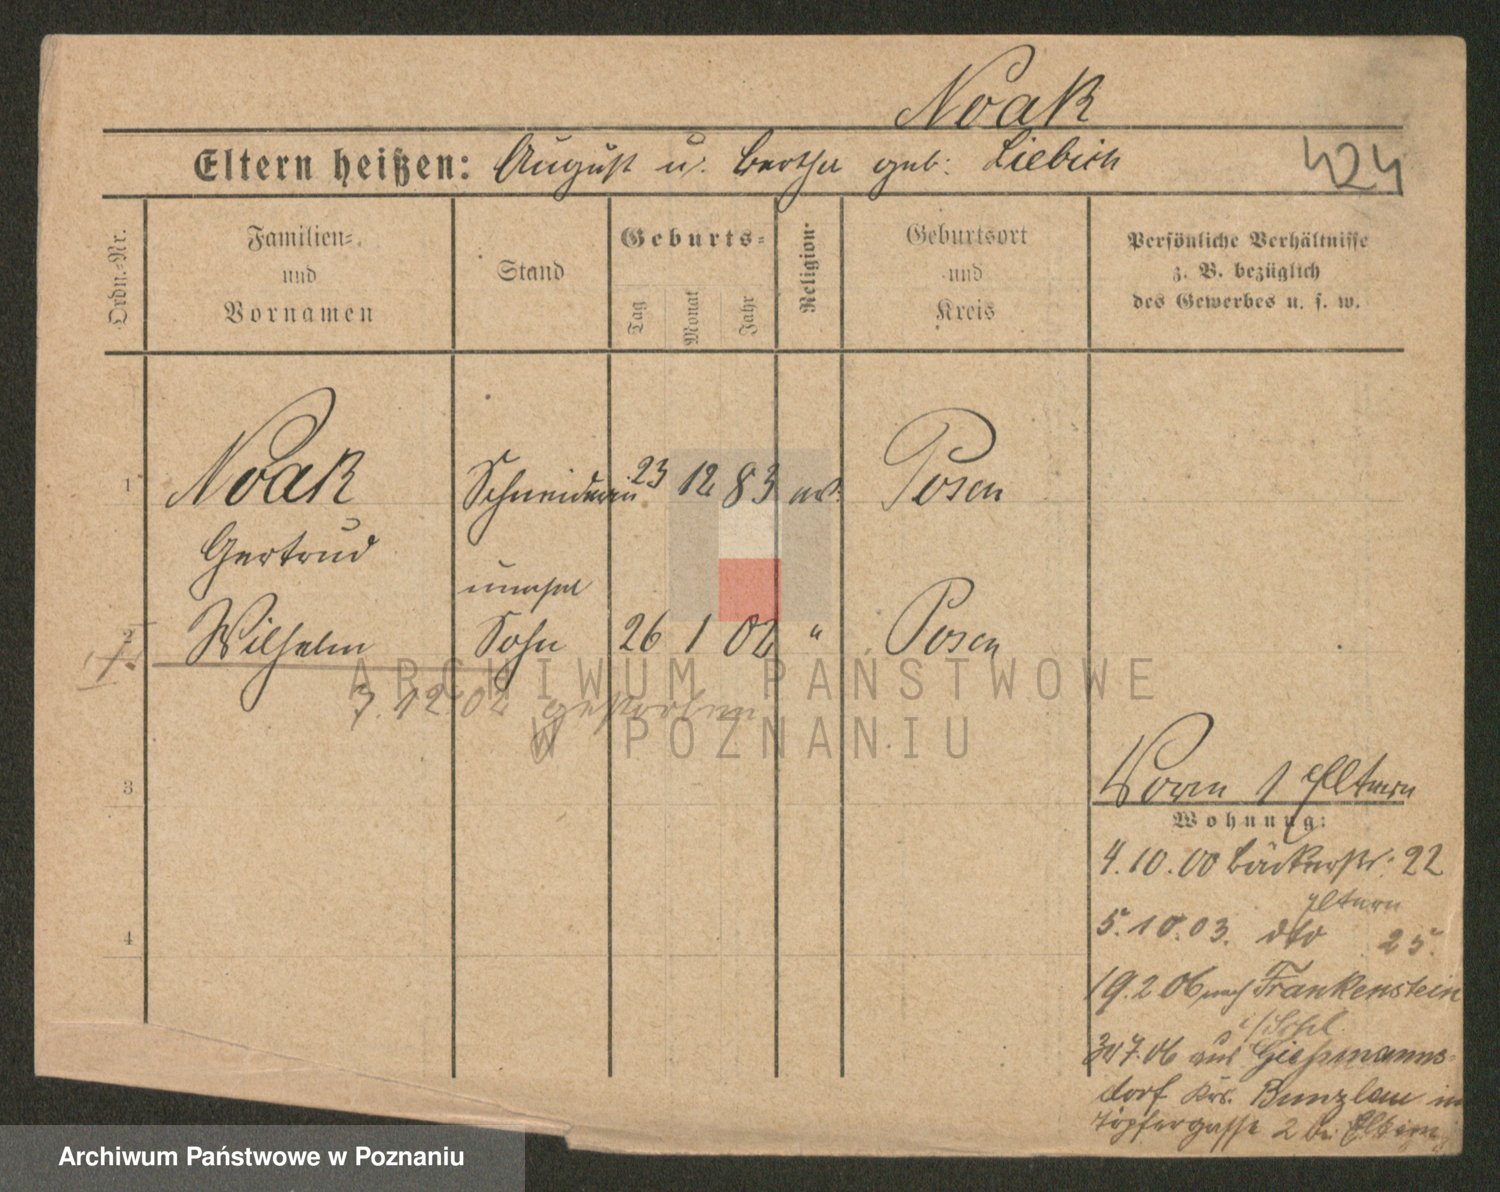 Noak
Eltern heißen: August u. Bertha geb. Liebich
424
Ordn.-Nr.
Familien-
und
Vornamen
Stand
Geburts-
Tag
Monat
Jahr
Religion
Geburtsort
und
Kreis
Persönliche Verhältnisse
z. B. bezüglich
des Gewerbes u. s. w.
1 Noak Schneiderin 23 12 83 Posen
Gertrud
unehel
2 Wilhelm Sohn 26 1 02 " Posen
3.12.02 gestorben
3
Eltern
Wohnung:
4.10.00 Bäckerstr. 22
Eltern
5.10.03. dto 25.
4
19.2.06 nach Frankenstein
i/Schl.
30.7.06 aus Giessmanns-
dorf Krs. Bunzlau in
Töpfergasse 2 bei Eltern
ARCHIWUM PAŃSTWOWE
W POZNANIU
Archiwum Państwowe w Poznaniu